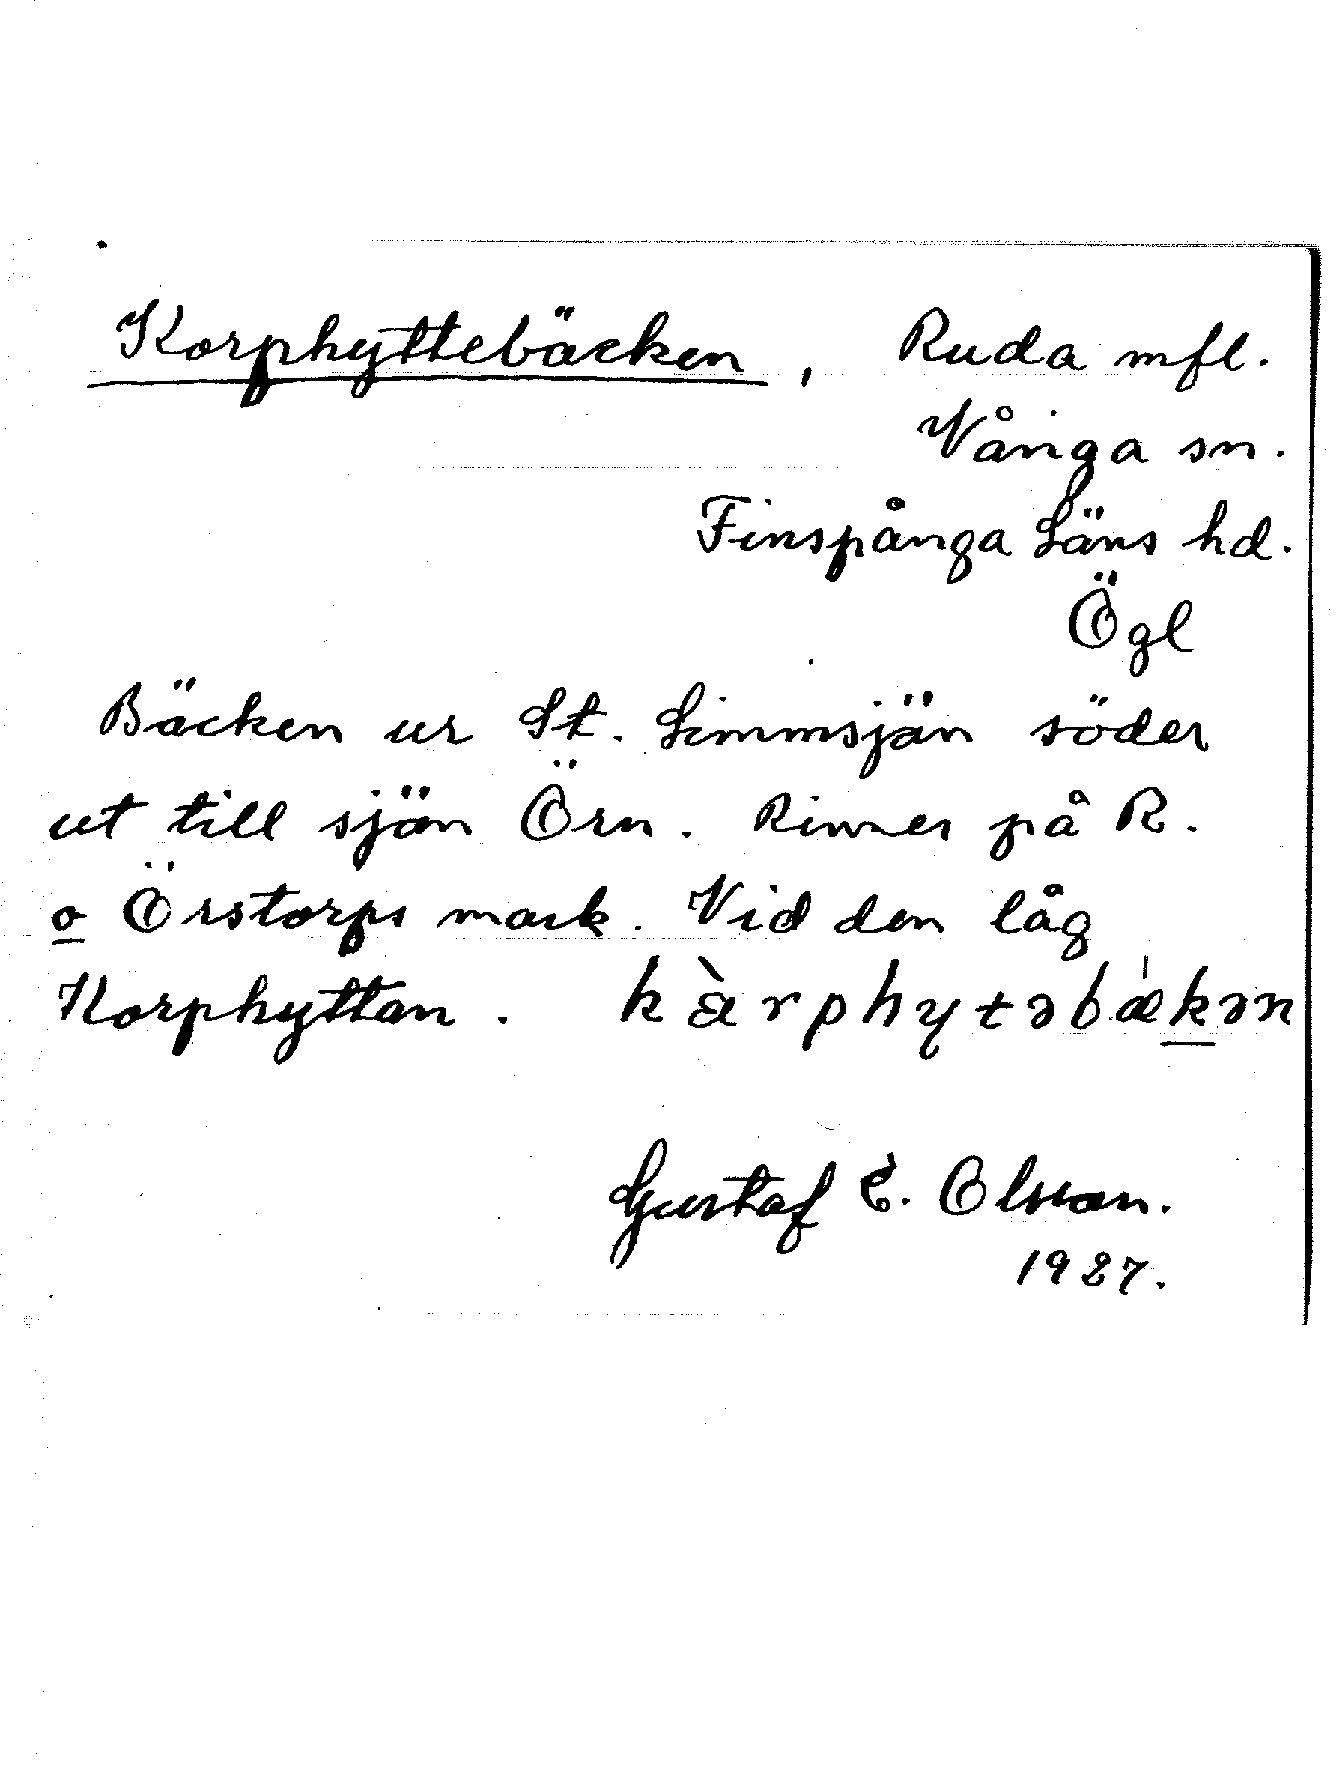 Korphyttebäcken, Ruda mfl.
Vånga sn.
Finspånga Läns hd.
Ögl
Bäcken ur St. Limmsjön söder
ut till sjön Örn. Rinner på R.
o Örstorps mark. Vid den låg
Korphyttan. kàrphytəbækən
Gustaf E. Olsson.
1927.